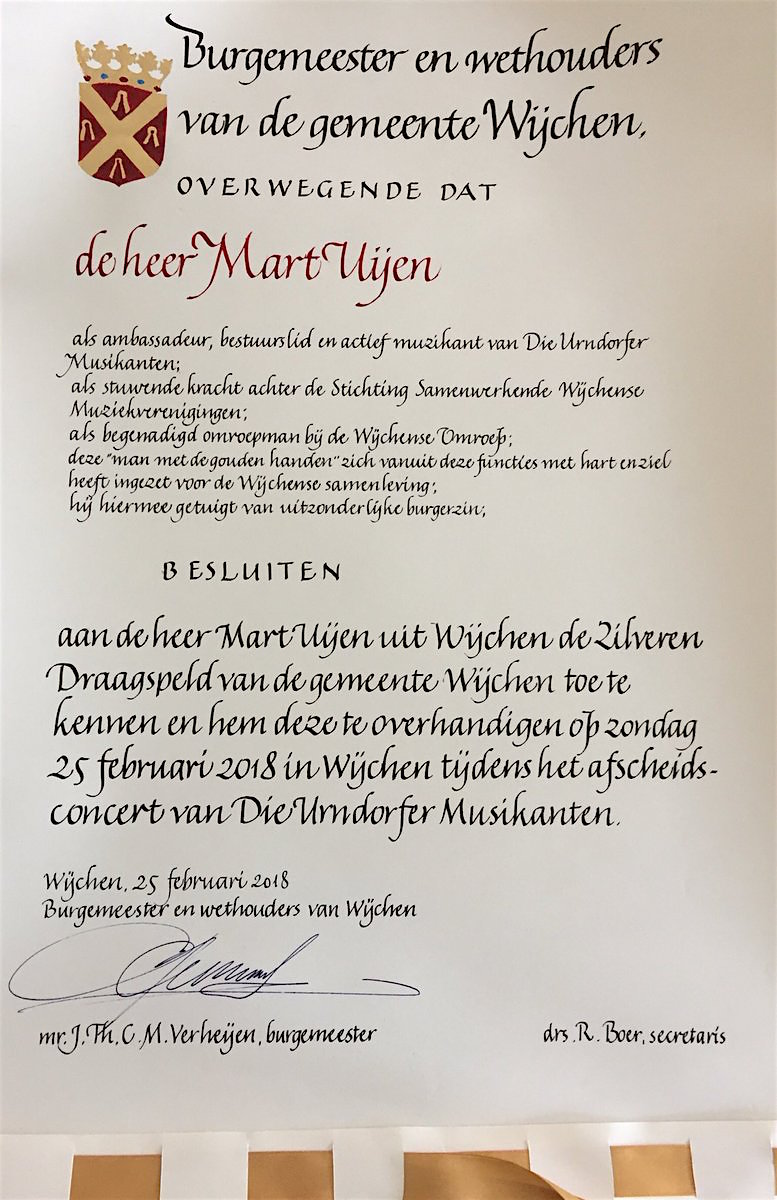 Burgemeester en wethouders
van de gemeente Wijchen,
OVERWEGENDE DAT
de heer Mart Uijen
als ambassadeur, bestuurslid en actief muzikant van Die Urndorfer
Musikanten;
als stuwende kracht achter de Stichting Samenwerkende Wijchense
Muziekverenigingen;
als begenadigd omroepman bij de Wijchense Omroep;
deze "man met de gouden handen" zich vanuit deze functies met hart en ziel
heeft ingezet voor de Wijchense samenleving;
hij hiermee getuigt van uitzonderlijke burgerzin;
BESLUITEN
aan de heer Mart Uijen uit Wijchen de Zilveren
Draagspeld van de gemeente Wijchen toe te
kennen en hem deze te overhandigen op zondag
25 februari 2018 in Wijchen tijdens het afscheids-
concert van Die Urndorfer Musikanten.
Wijchen, 25 februari 2018
Burgemeester en wethouders van Wijchen
mr. J. Th. C. M. Verheijen, burgemeester
drs. R. Boer, secretaris